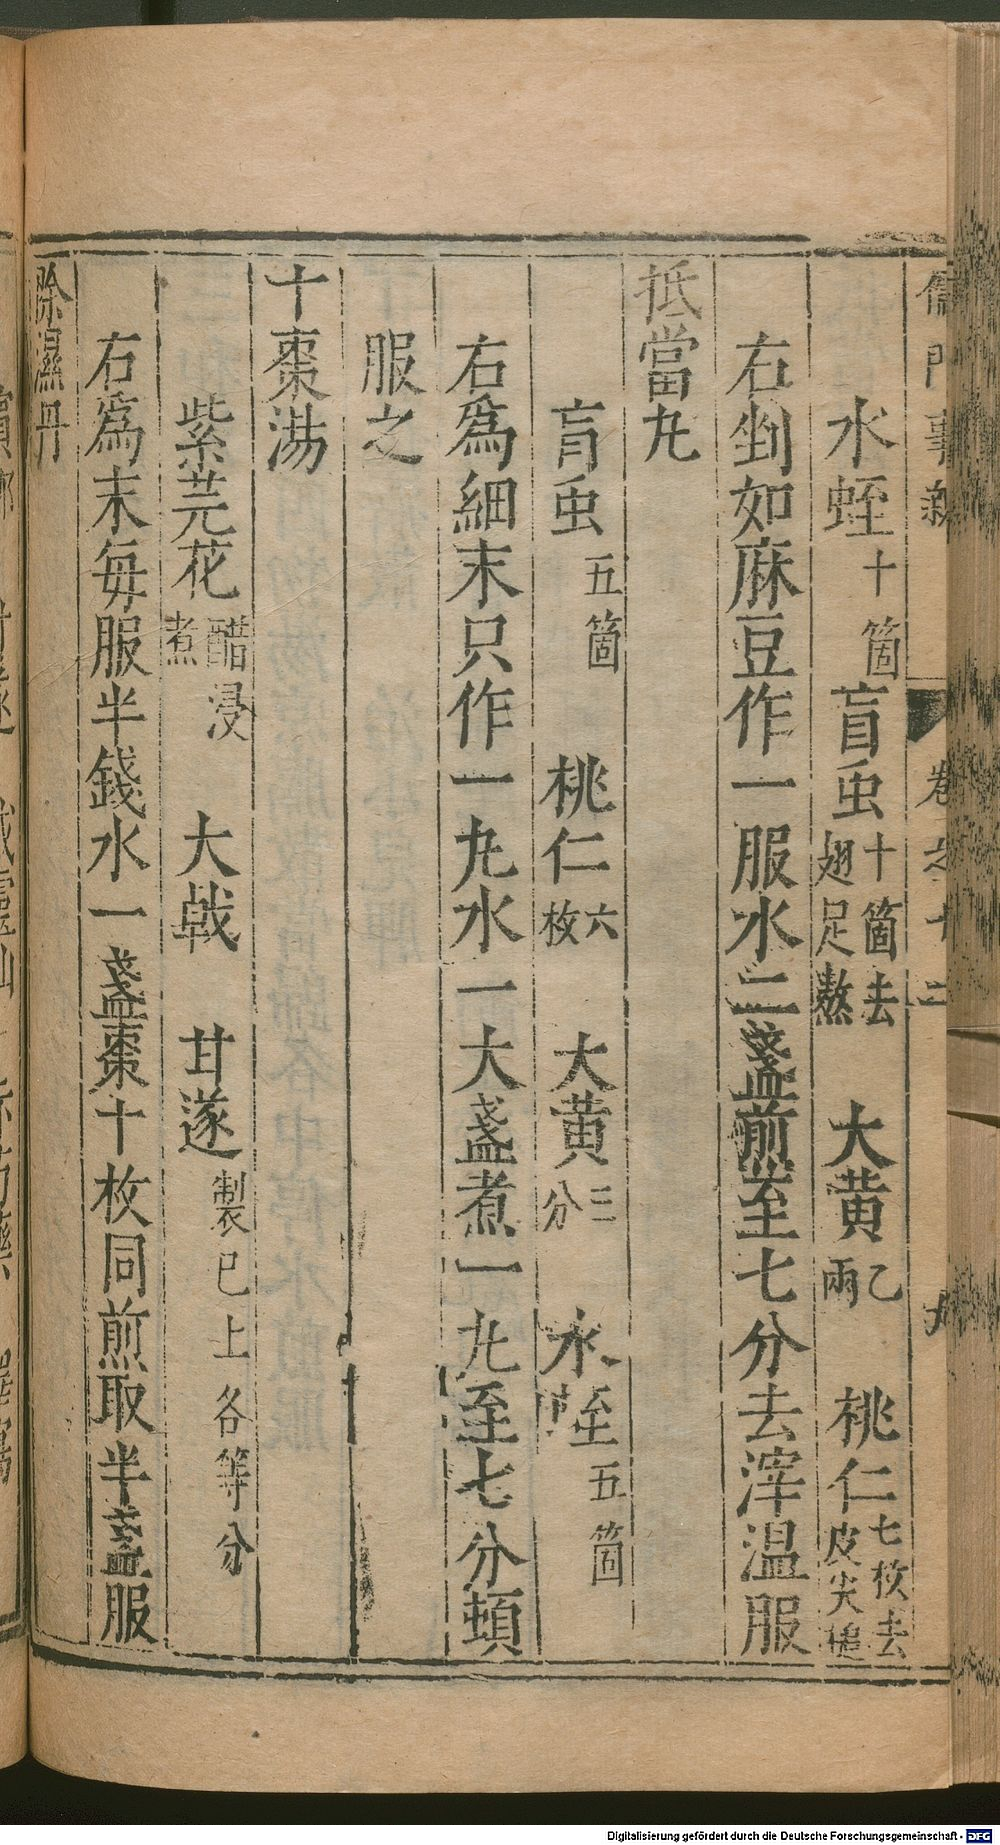 儒門事親 卷之十二 九
水蛭十箇 盲虫十箇去翅足熬 大黄乙兩 桃仁七枚去皮尖
右剉如麻豆作一服水二盞煎至七分去滓温服
抵當丸
肓虫五箇 桃仁六枚 大黄三分 水蛭五箇
右爲細末只作一丸水一大盞煮一丸至七分頓
服之
十棗湯
紫芫花醋浸煮 大戟 甘遂製已上各等分
右爲末每服半錢水一盞棗十枚同煎取半盞服
除濕丹
Digitalisierung gefördert durch die Deutsche Forschungsgemeinschaft - DFG